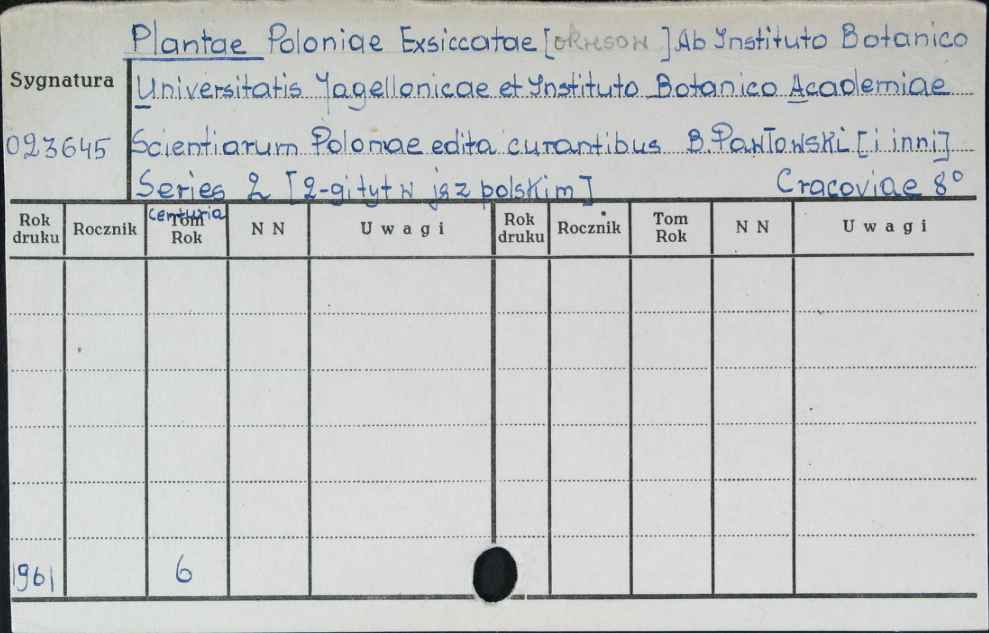 Plantae Poloniae Exsiccatae [okresow] Ab Instituto Botanico
Sygnatura
Universitatis Jagellonicae et Instituto Botanico Academiae
023645
Scientiarum Polonae edita curantibus B. Pawłowski [i inni]
Series 2 [2-gi tyt w jęz polskim] Cracoviae 8°
centuria
Rok druku Rocznik Tom Rok N N Uwagi Rok druku Rocznik Tom Rok N N Uwagi
1961 6